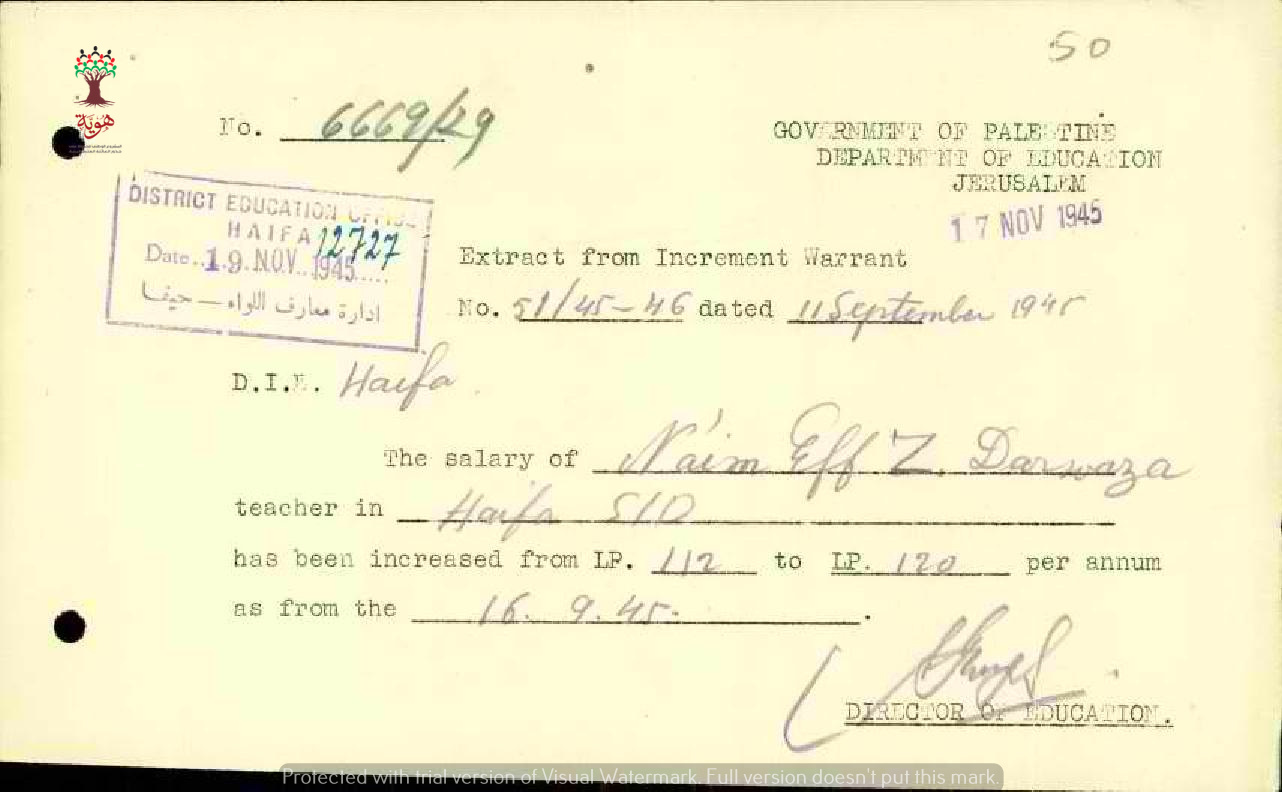 50
هوية
No. 6669/29
GOVERNMENT OF PALESTINE
DEPARTMENT OF EDUCATION
JERUSALEM
17 NOV 1945
DISTRICT EDUCATION OFFICE
HAIFA 12727
Date..19.NOV.1945.....
ادارة معارف اللواء — حيفا
Extract from Increment Warrant
No. 51/45-46 dated 11 September 1945
D.I.E. Haifa
The salary of Na'im Eff Z. Darwaza
teacher in Haifa S/D
has been increased from LP. 112 to LP. 120 per annum
as from the 16. 9. 45.
DIRECTOR OF EDUCATION.
Protected with trial version of Visual Watermark. Full version doesn't put this mark.